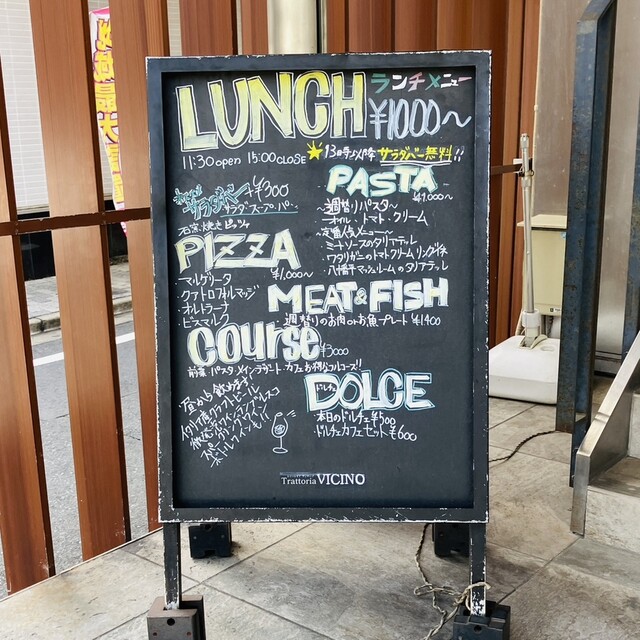 LUNCH ランチメニュー
¥1000〜
11:30 open 15:00 CLOSE
★13時以降 サラダバー無料!!
サラダバー ¥300
サラダ・スープ・バー
PASTA
¥1,000〜
〜週替りパスタ〜
・オイル・トマト・クリーム
〜定番人気メニュー〜
・ミートソースのタリアテッレ
・ワタリガニのトマトクリームリングイネ
・八幡平マッシュルームのタリアテッレ
石窯焼きピッツァ
PIZZA
¥1,000〜
・マルゲリータ
・クアトロフォルマッジ
・オルトラーナ
・ビスマルク
MEAT&FISH
週替りのお肉orお魚プレート ¥1400
Course
¥3000
前菜 パスタ メイン デザート カフェ お得なフルコース!!
・昼から飲めます
クラフトビール
スパークリングワイン
ボトルワイン
ドルチェ
DOLCE
本日のドルチェ ¥500
ドルチェカフェセット ¥600
Trattoria VICINO